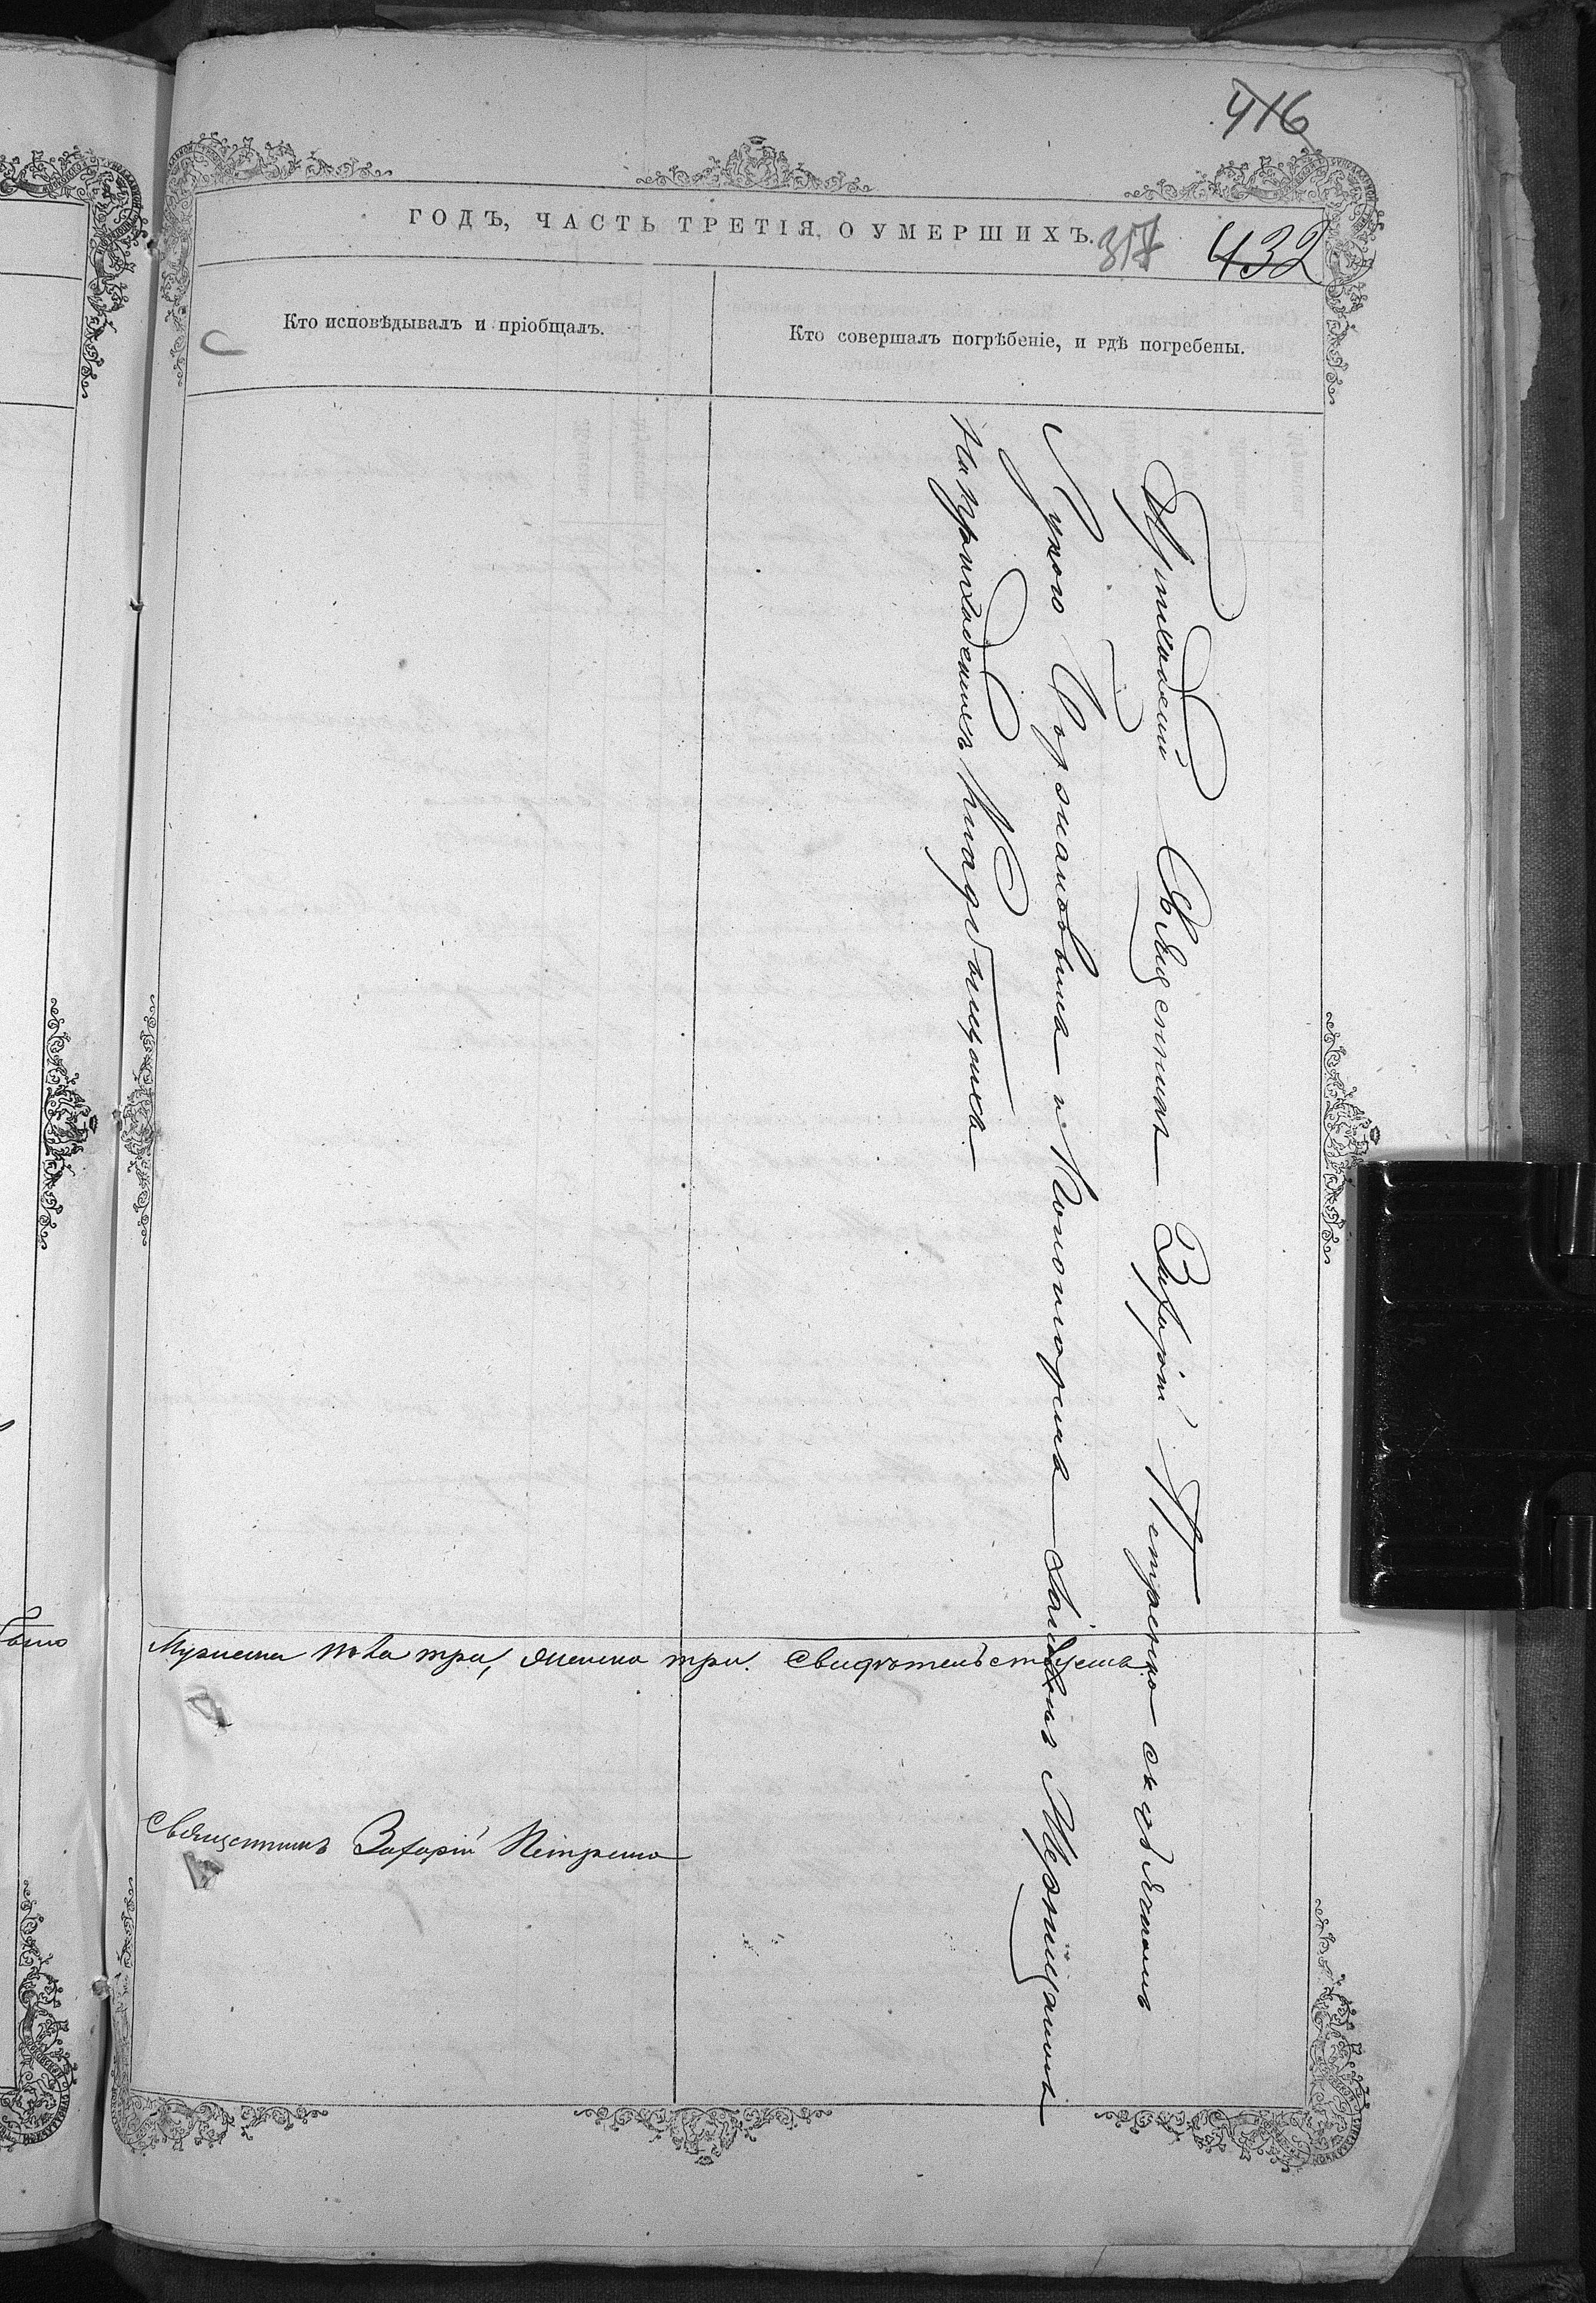 416
ГОДЪ, ЧАСТЬ ТРЕТІЯ, О УМЕРШИХЪ.
317
432
Кто исповѣдывалъ и пріобщалъ.
Кто совершалъ погрѣбеніе, и гдѣ погребены.
Приходскій Священникъ Захарій Петренко съ дьякономъ
Лукою и Пономоремъ
на приходскомъ кладбищѣ
Мужеска пола три, женска три. Свидѣтельствуемъ
Священникъ Захарій Петренко